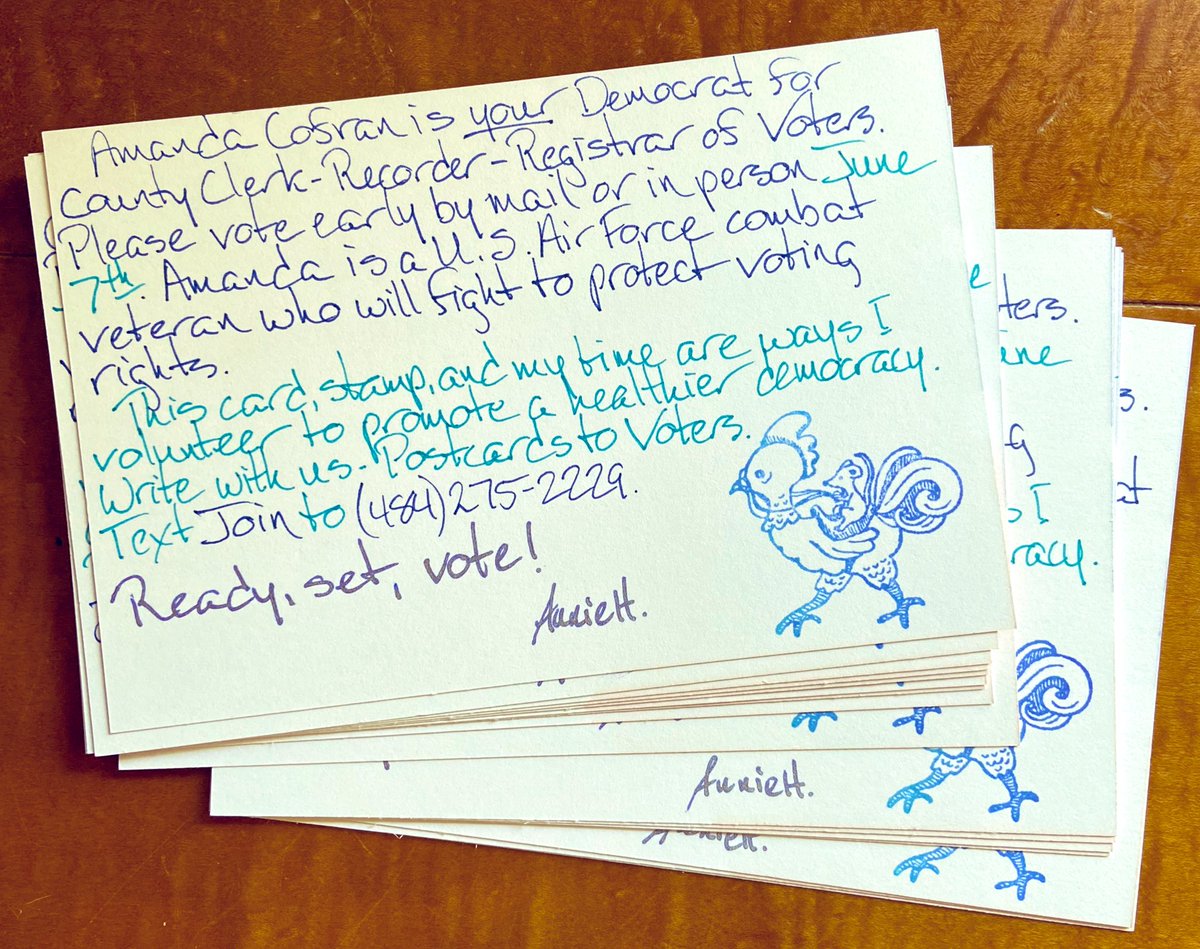 Amanda Cofran is your Democrat for
County Clerk-Recorder-Registrar of Voters.
Please vote early by mail or in person June
7th. Amanda is a U.S. Air Force combat
veteran who will fight to protect voting
rights.
This card, stamp, and my time are ways I
volunteer to promote a healthier democracy.
Write with us. Postcards to Voters.
Text Join to (484) 275-2229.
Ready, set, vote!
AnnieH.
ters.
une
g
I
racy.
AnnieH.